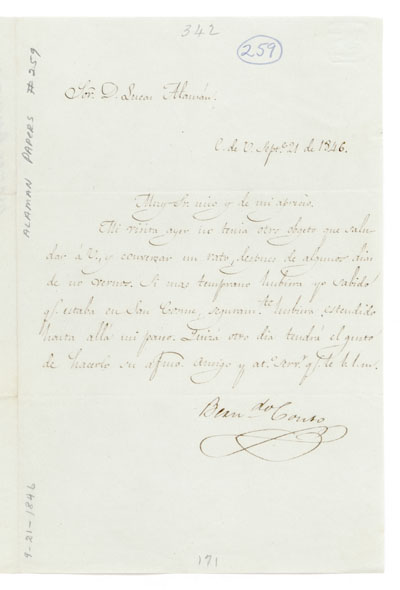 342
259
Sor. D. Lucas Alamán.
C. de V. Sepre. 21 de 1846.
Muy Sr. mio y de mi aprecio.
Mi visita ayer no tenia otro objeto que salu-
dar á V., y conversar un rato, despues de algunos dias
de no vernos. Si mas temprano hubiera yo sabido
q. estaba en San Cosme, seguramte. hubiera estendido
hasta allá mi paseo. Quizá otro dia tendrá el gusto
de hacerlo su afmo. Amigo y at. Servr. q.
Berndo. Couto
171
ALAMAN PAPERS #259
9-21-1846